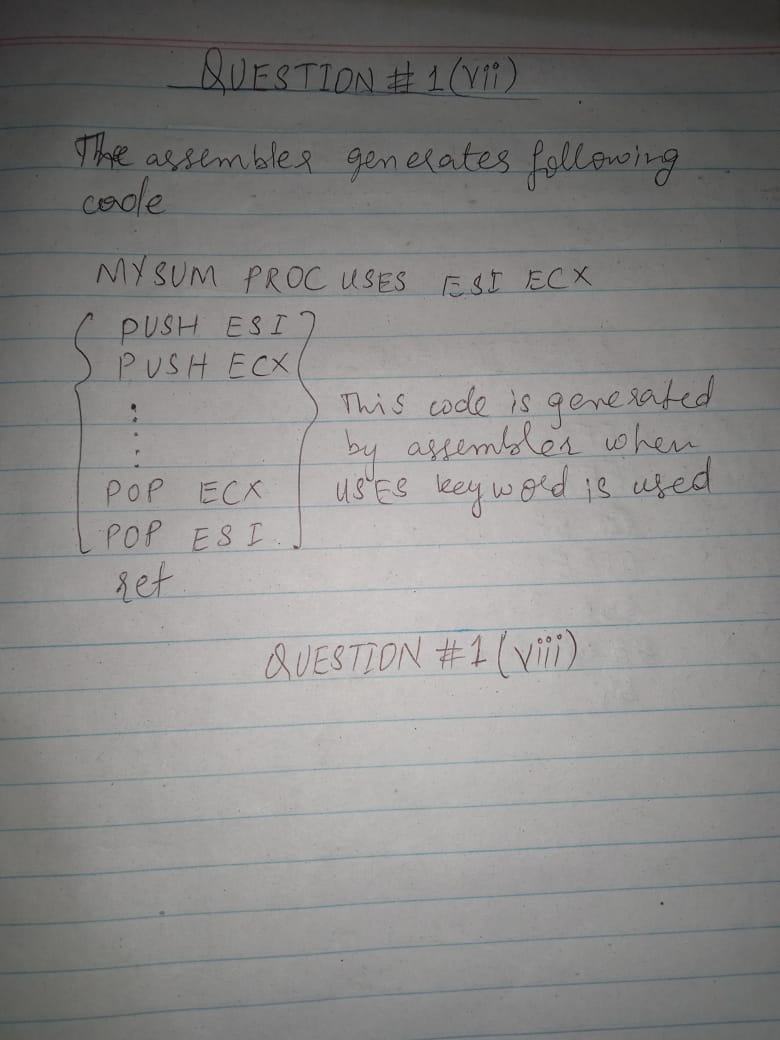 QUESTION # 1(vii)
The assembler generates following
code
MYSUM PROC USES ESI ECX
PUSH ESI
PUSH ECX
This code is generated
by assembler when
USES keyword is used
POP ECX
POP ESI
ret
QUESTION #1 (viii)